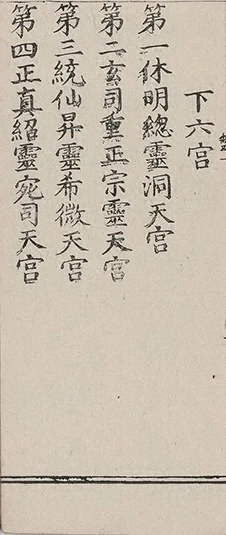 下六宫
第一休明緫靈洞天宫
第二玄司重正宗靈天宫
第三統仙昇靈希微天宫
第四正真紹靈宛司天宫